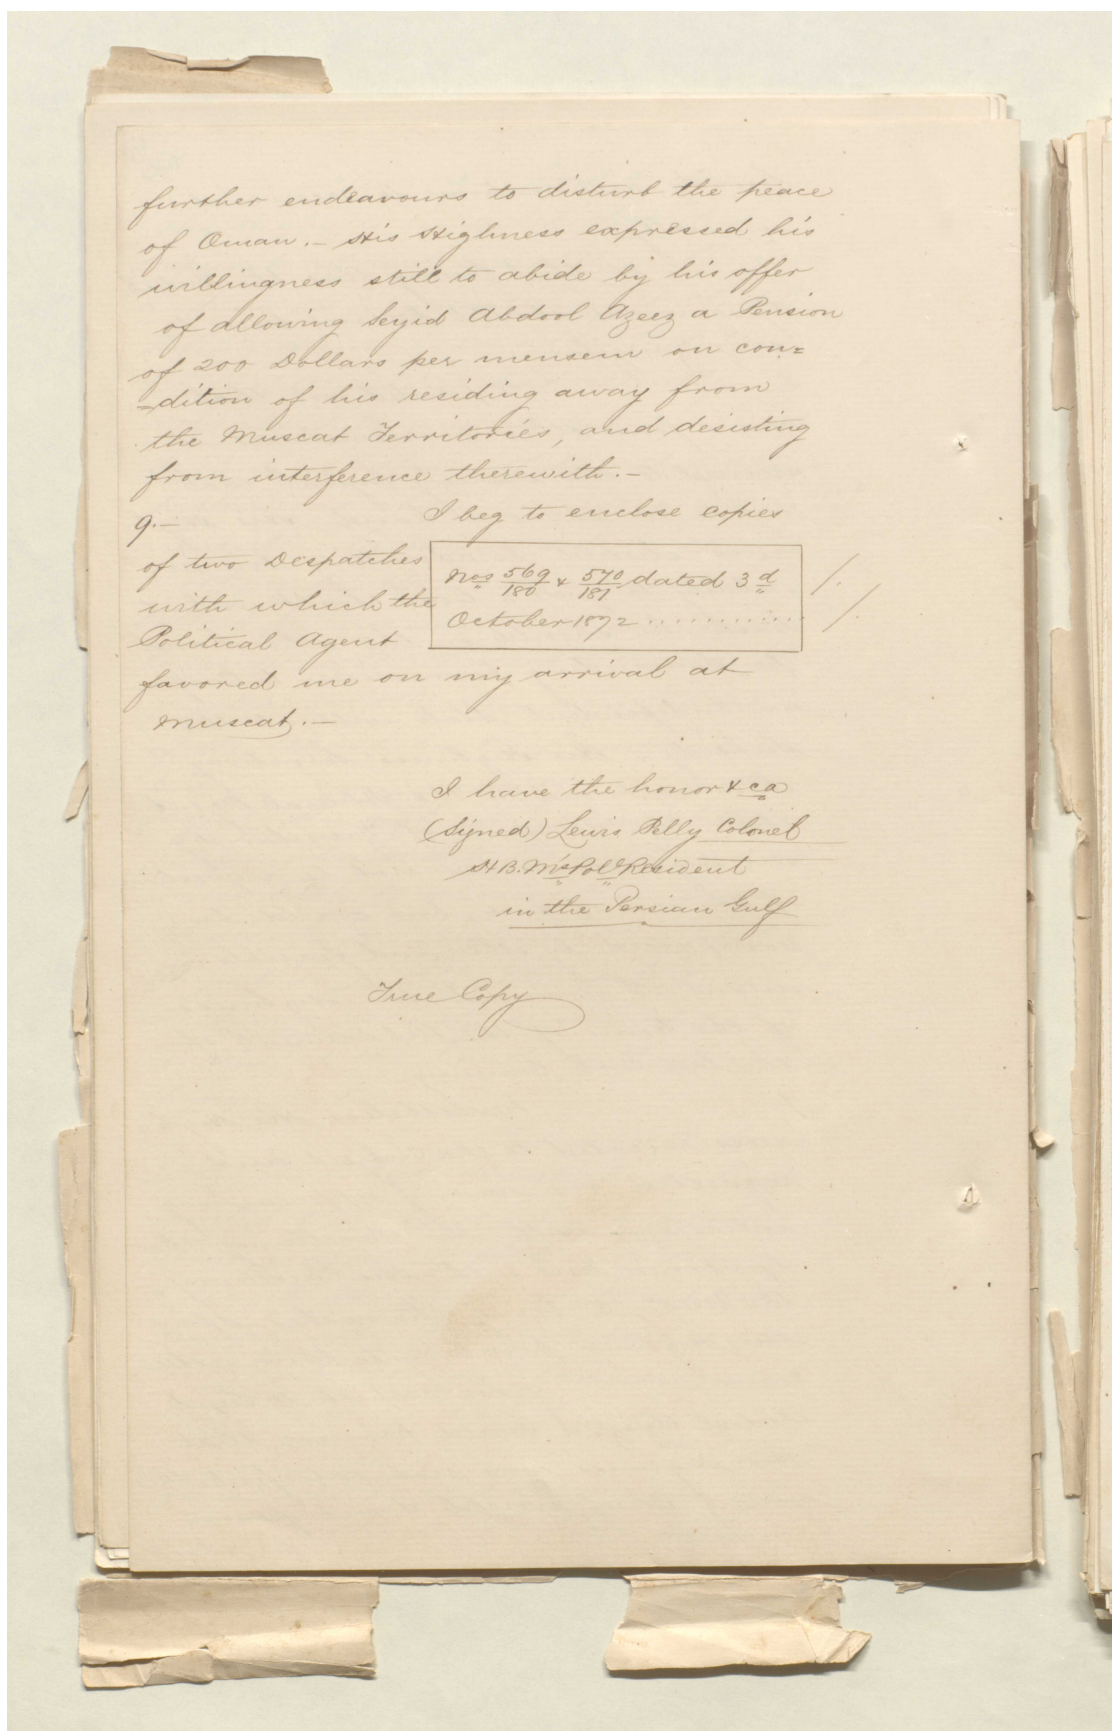 further endeavours to disturb the peace
of Oman.— His Highness expressed his
willingness still to abide by his offer
of allowing Seyid Abdool Azeez a Pension
of 200 Dollars per mensem on con=
=dition of his residing away from
the Muscat Territories, and desisting
from interference therewith.—
9.— I beg to enclose copies
of two Despatches
with which the
Political Agent
Nos 569/180 & 570/181 dated 3d /.
October 1872 ............ /.
favored me on my arrival at
Muscat.—
I have the honor &ca
(Signed) Lewis Pelly Colonel
H.B.M's Poll Resident
in the Persian Gulf
True Copy